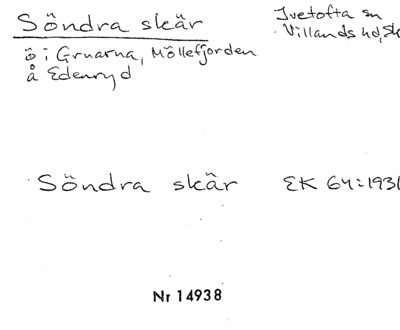 Söndra skär
Ivetofta sn
Villands hd, Sk
ö i Gruarna, Möllefjorden
å Edenryd
Söndra skär EK 64:1931
Nr 14938